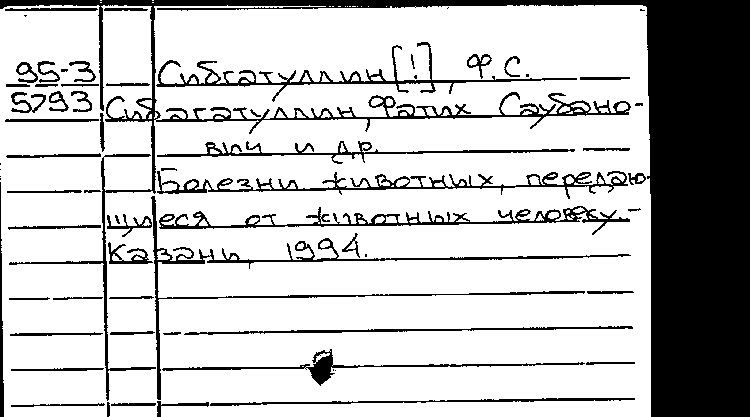 95-3 Сибгатуллин [!], Ф.С.
5793 Сибагатуллин, Фатих Саубано-
вич и др.
Болезни животных, передаю-
щиеся от животных человеку.-
Казань, 1994.